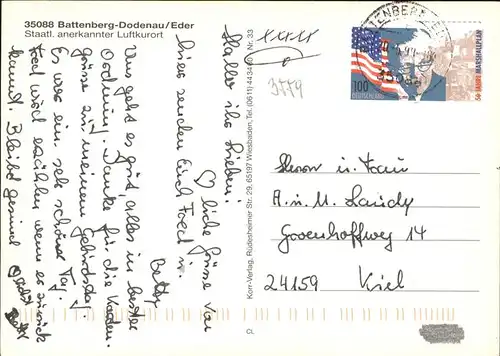 35088 Battenberg-Dodenau/Eder
Staatl. anerkannter Luftkurort
Hallo ihr Lieben!
♡ liche Grüsse von
hier senden Euch Fred u.
Betty
Uns geht es gut, alles in bester
Ordnung. Danke für die Karten
grüsse zu meinem Geburtstag.
Es war ein sehr schöner Tag.
Fred wird erzählen wenn er zurück
kommt. Bleibt gesund
Korr-Verlag, Rüdesheimer Str. 29, 65197 Wiesbaden, Tel. (0611) 443440 Nr. 33
3779
100
DEUTSCHLAND
50 JAHRE MARSHALLPLAN
Herrn u. Frau
A. u. M. Landy
Grevenhoffweg 14
24159 Kiel
CL